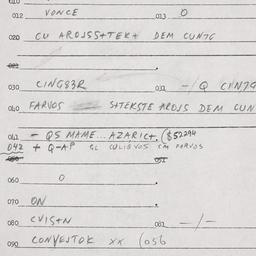 010
012 VONCE 013 O
020 CU AROJSS+TEK+ DEM CUN7G
022
030 CINGS3R 031 -/ Q CIIN7G
040 FARVOS S+TEKSTE AROJS DEM CUN
041 - QS MAME... AZARIC+. ($52294
042 + Q-AP GL CULIBVOS EM PARVOS
050 051
060 O
070 ON
080 CVIS+N 081 -/-
090 CONVESTOK xx (056